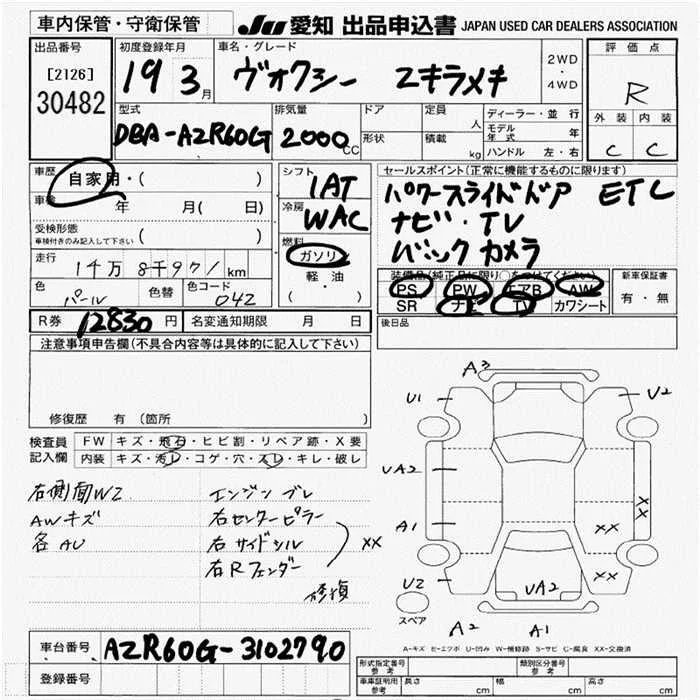 車内保管・守衛保管
JU 愛知 出品申込書 JAPAN USED CAR DEALERS ASSOCIATION
出品番号
[2126]
30482
初度登録年月
19 3月
車名・グレード
ヴォクシー Zキラメキ
2WD
・
4WD
評価点
R
外装 内装
C C
型式
DBA-AZR60G
排気量
2000 CC
ドア
形状
定員
人
積載
kg
ディーラー・並行
モデル年式 年
ハンドル 左・右
車歴
自家用・( )
車検 年 月( 日)
受検形態
車検付きのみ記入して下さい ( )
走行
1千万8千9百71km
色
パール
色替
色コード
042
R券 12830円
名変通知期限 月 日
シフト
IAT
冷房
WAC
燃料
ガソリン
軽・油
( )
セールスポイント(正常に機能するものに限ります)
パワースライドドア ETC
ナビ・TV
バックカメラ
装備品(純正品に限り○をつけてください)
PS PW エアB AW
SR ナビ TV カワシート
新車保証書
有・無
後日品
注意事項申告欄(不具合内容等は具体的に記入して下さい)
修復歴 有 (箇所 )
検査員記入欄
FW キズ・飛石・ヒビ割・リペア跡・X要
内装 キズ・汚レ・コゲ・穴・スレ・キレ・破レ
右側面WZ
AWキズ
各AU
エンジンブレ
右センターピラー
右サイドシル
右Rフェンダー
XX
修損
A3
U1
U2
UA2
A1
XX
XX
XX
U2
UA2
スペア
A2
A1
A-キズ E-エクボ U-凹み W-補修跡 S-サビ C-腐食 XX-交換済
車台番号 AZR60G-3102790
登録番号
形式指定番号
参考
類別区分番号
参考
車庫証明用
参考
長さ cm 幅 cm 高さ cm